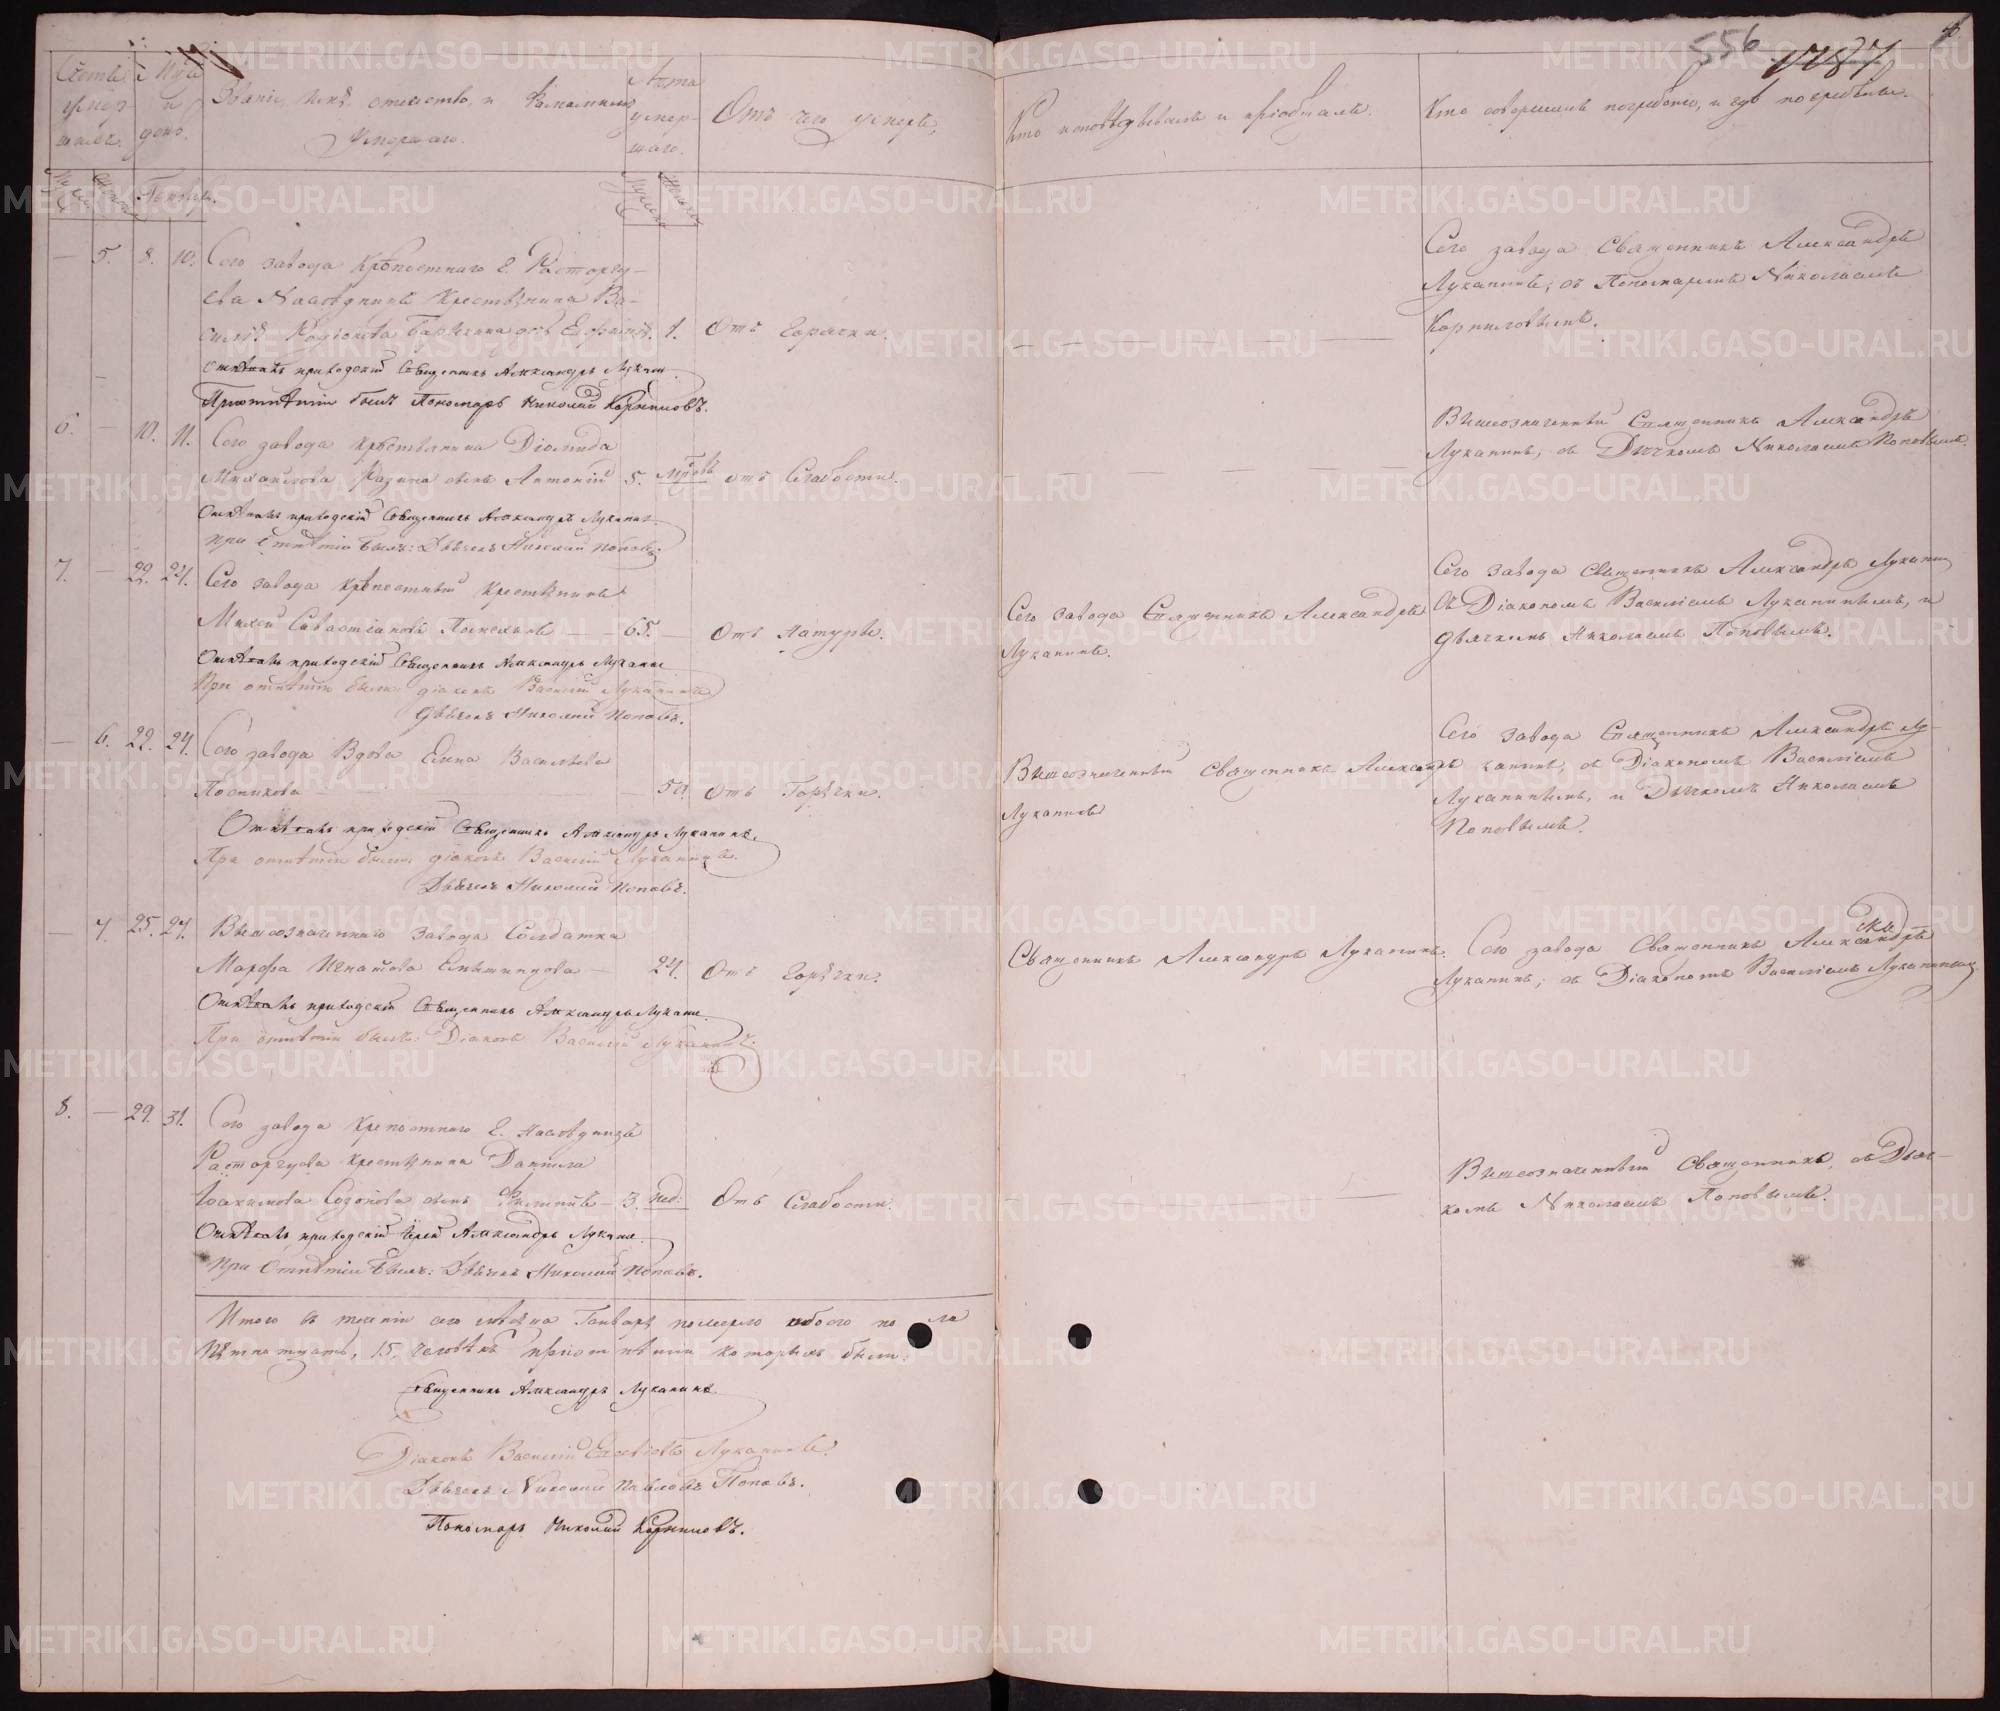 556
1787
Счетъ умер-шихъ.
Мѣс. и день.
Званіе, имя, отчество, и фамилія
Умершаго.
Лѣта умер-шаго.
Отъ чего умеръ,
Кто исповѣдывалъ и пріобщалъ.
Кто совершилъ погребеніе, и гдѣ погребены.
Январь.
— 5. 8. 10. Сего завода Крѣпостнаго Г. Расторгу-
ева Наслѣдницъ Крестьянина Ва-
силія Родіонова дочь 1. Отъ Горячки.
Отпѣвалъ приходскій Священникъ Александръ Луканин
При отпѣтіи былъ Пономарь Николай Корниловъ.
Сего завода Священникъ Александръ
Луканинъ, съ Пономаремъ Николаемъ
Корниловымъ.
6. — 10. 11. Сего завода Крестьянина Діомида
Михайлова сынъ Антоній 5. отъ Слабости.
Отпѣвалъ приходскій Священникъ Александръ Луканин
При Отпѣтіи Былъ: Дьячекъ Николай Поповъ.
Вышеозначенный Священникъ Александръ
Луканинъ, съ Дьячкомъ Николаемъ Поповымъ.
7. — 22. 24. Сего завода Крѣпостный Крестьянинъ
Савастіановъ — 65. — Отъ Натуры.
Отпѣвалъ приходскій Священникъ Александръ Луканин
При отпѣтіи были: діаконъ Василій Луканинъ
Дьячекъ Николай Поповъ.
Сего завода Священникъ Александръ
Луканинъ.
Сего завода Священникъ Александръ Луканин
съ Діакономъ Василіемъ Луканинымъ, и
дьячкомъ Николаемъ Поповымъ.
— 6. 22. 24. Сего завода Вдова Елена Васильева
Постникова — 50. Отъ Горячки.
Отпѣвалъ приходскій Священникъ Александръ Луканинъ.
При отпѣтіи были: діаконъ Василій Луканинъ.
Дьячекъ Николай Поповъ.
Вышеозначенный Священникъ Александръ
Луканинъ
Сего завода Священникъ Александръ Лу-
канинъ, съ Діакономъ Василіемъ
Луканинымъ, и Дьячкомъ Николаемъ
Поповымъ.
— 7. 25. 27. Вышеозначеннаго завода Солдатка
Марфа Игнатова — 24. Отъ Горячки.
Отпѣвалъ приходскій Священникъ Александръ Луканин
При отпѣтіи былъ: Діаконъ Василій Луканинъ.
Священникъ Александръ Луканинъ.
Сего завода Священникъ Александръ
Луканинъ, съ Діакономъ Василіемъ Луканинымъ
8. — 29. 31. Сего завода Крѣпостнаго Г. Наслѣдницъ
Расторгуева Крестьянина Данила
Іоакимова Созонова сынъ Филиппъ — 3. нед: Отъ Слабости.
Отпѣвалъ приходскій Іерей Александръ Луканин
При Отпѣтіи Былъ: Дьячекъ Николай Поповъ.
Вышеозначенный Священникъ, съ Дьяч-
комъ Николаемъ Поповымъ.
Итого въ теченіи сего мѣсяца Январѣ померло обоего по ла
Пятнатцать, 15. человѣкъ при отпѣтіи которыхъ были:
Священникъ Александръ Луканинъ.
Діаконъ Василій Луканинъ.
Дьячекъ Николай Павловъ Поповъ.
Пономарь Николай Корниловъ.
METRIKI.GASO-URAL.RU